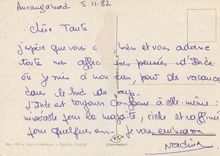 Aurangabad 5.11.82
Chère Tante
J'espère que vous bien et vous adresse
toute mes pensées d'Inde
où je suis à nouveau, pour de vacances
dans le Sud du pays.
L'Inde est toujours conforme à elle même:
misérable pour la majorité, riche et
pour quelques uns. Je vous embrasse
Nadine